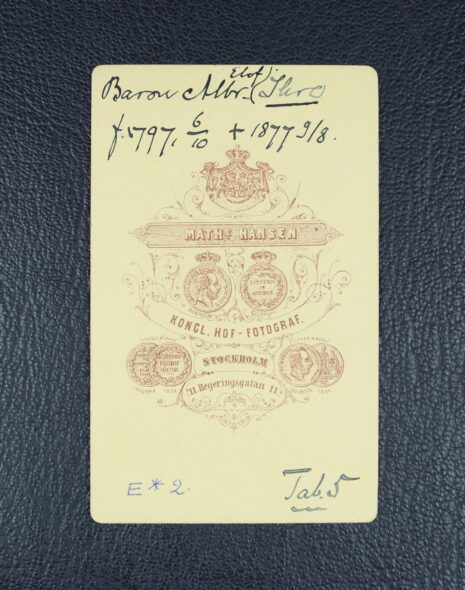 Elof).
Baron Albr. (Ihre)
f. 1797, 6/10 + 1877 9/8.
MATHS HANSEN
LITTERIS ET ARTIBUS
KONGL. HOF-FOTOGRAF.
STOCKHOLM
11 Regeringsgatan 11
E * 2.
Tab. 5